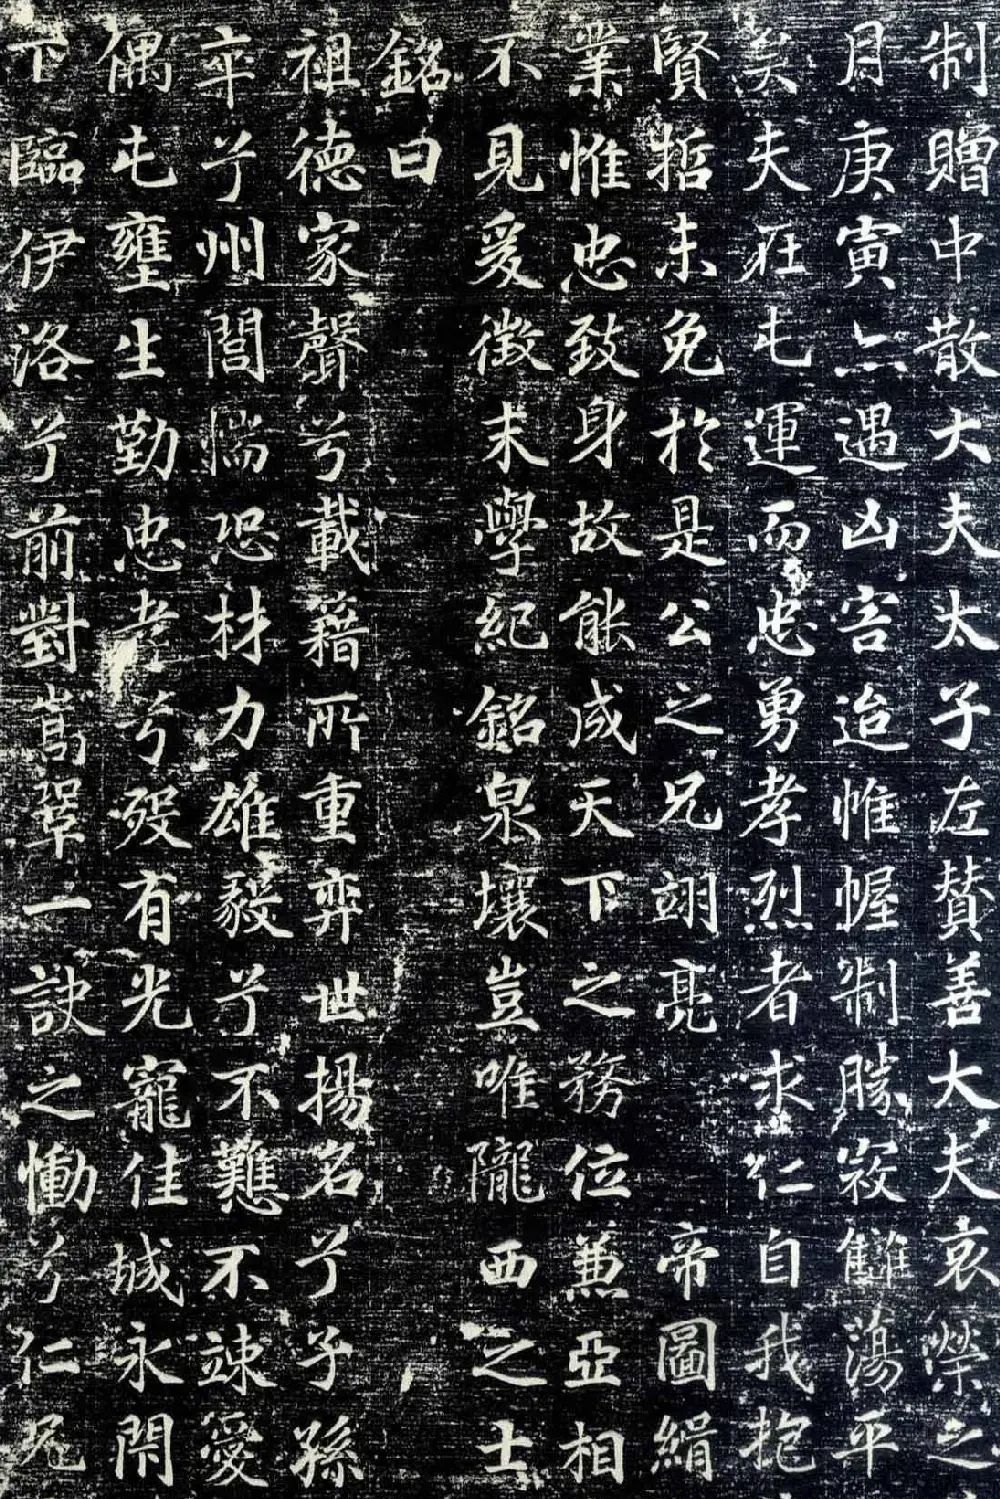 制贈中散大夫太子左贊善大夫哀榮之
月庚寅亦遇凶害迨帷幄制勝寇讎蕩平
矣夫在屯運而忠勇孝烈者求仁自我抱
賢哲未免於是公之兄翊亮帝圖緝
業惟忠致身故能成天下之務位兼亞相
不見爰徵末學紀銘泉壤豈唯隴西之士
銘曰
祖德家聲兮載籍所重弈世揚名兮子孫
卒兮州閭惴恐材力雄毅兮不難不竦愛
偶屯壅生勤忠孝兮歿有光寵佳城永閇
下臨伊洛兮前對嵩鞏一訣之慟兮仁兄